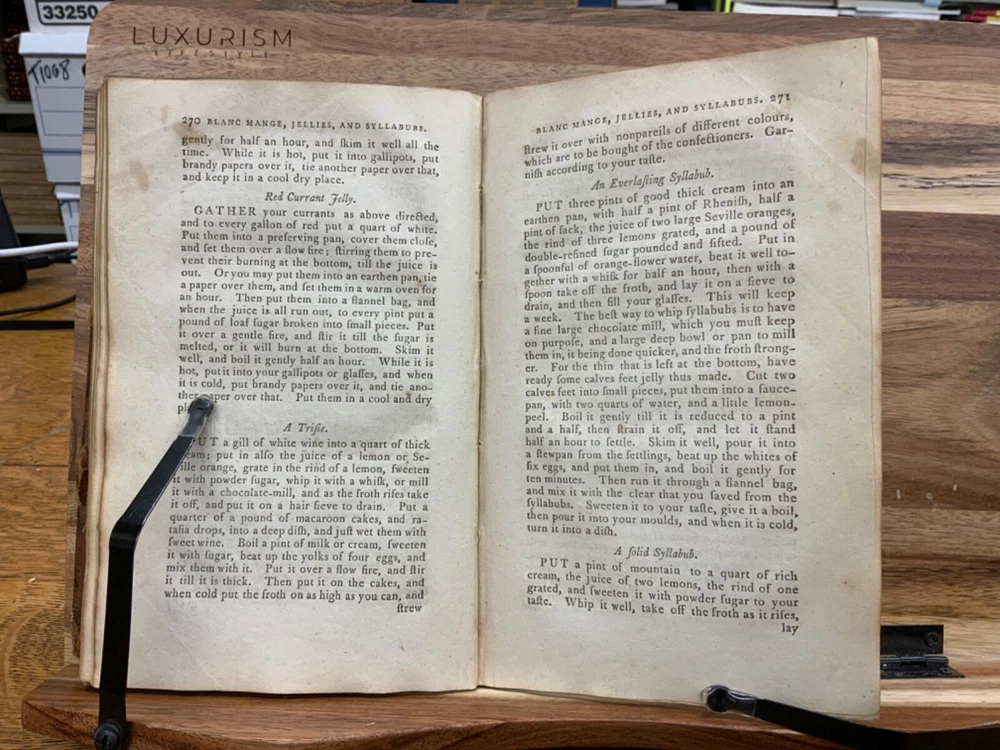 33250
T1068
LUXURISM
LIFESTYLE
270 BLANC MANGE, JELLIES, AND SYLLABUBS.
gently for half an hour, and ſkim it well all the
time. While it is hot, put it into gallipots, put
brandy papers over it, tie another paper over that,
and keep it in a cool dry place.
Red Currant Jelly.
GATHER your currants as above directed,
and to every gallon of red put a quart of white.
Put them into a preſerving pan, cover them cloſe,
and ſet them over a ſlow fire; ſtirring them to pre-
vent their burning at the bottom, till the juice is
out. Or you may put them into an earthen pan, tie
a paper over them, and ſet them in a warm oven for
an hour. Then put them into a flannel bag, and
when the juice is all run out, to every pint put a
pound of loaf ſugar broken into ſmall pieces. Put
it over a gentle fire, and ſtir it till the ſugar is
melted, or it will burn at the bottom. Skim it
well, and boil it gently half an hour. While it is
hot, put it into your gallipots or glaſſes, and when
it is cold, put brandy papers over it, and tie ano-
ther paper over that. Put them in a cool and dry
A Trifle.
PUT a gill of white wine into a quart of thick
cream; put in alſo the juice of a lemon or Se-
ville orange, grate in the rind of a lemon, ſweeten
it with powder ſugar, whip it with a whiſk, or mill
it with a chocolate-mill, and as the froth riſes take
it off, and put it on a hair ſieve to drain. Put a
quarter of a pound of macaroon cakes, and ra-
tafia drops, into a deep diſh, and juſt wet them with
ſweet wine. Boil a pint of milk or cream, ſweeten
it with ſugar, beat up the yolks of four eggs, and
mix them with it. Put it over a ſlow fire, and ſtir
it till it is thick. Then put it on the cakes, and
when cold put the froth on as high as you can, and
ſtrew
BLANC MANGE, JELLIES, AND SYLLABUBS. 271
ſtrew it over with nonpareils of different colours,
which are to be bought of the confectioners. Gar-
niſh according to your taſte.
An Everlaſting Syllabub.
PUT three pints of good thick cream into an
earthen pan, with half a pint of Rheniſh, half a
pint of ſack, the juice of two large Seville oranges,
the rind of three lemons grated, and a pound of
double-refined ſugar pounded and ſifted. Put in
a ſpoonful of orange-flower water, beat it well to-
gether with a whiſk for half an hour, then with a
ſpoon take off the froth, and lay it on a ſieve to
drain, and then fill your glaſſes. This will keep
a week. The beſt way to whip ſyllabubs is to have
a fine large chocolate mill, which you muſt keep
on purpoſe, and a large deep bowl or pan to mill
them in, it being done quicker, and the froth ſtrong-
er. For the thin that is left at the bottom, have
ready ſome calves feet jelly thus made. Cut two
calves feet into ſmall pieces, put them into a ſauce-
pan, with two quarts of water, and a little lemon-
peel. Boil it gently till it is reduced to a pint
and a half, then ſtrain it off, and let it ſtand
half an hour to ſettle. Skim it well, pour it into
a ſtewpan from the ſettlings, beat up the whites of
ſix eggs, and put them in, and boil it gently for
ten minutes. Then run it through a flannel bag,
and mix it with the clear that you ſaved from the
ſyllabubs. Sweeten it to your taſte, give it a boil,
then pour it into your moulds, and when it is cold,
turn it into a diſh.
A ſolid Syllabub.
PUT a pint of mountain to a quart of rich
cream, the juice of two lemons, the rind of one
grated, and ſweeten it with powder ſugar to your
taſte. Whip it well, take off the froth as it riſes,
lay